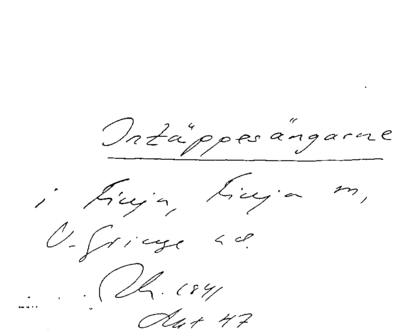 Intäppesängarne
i Finja, Finja m,
V. Göinge hd.
Rk. 1841
Akt 47